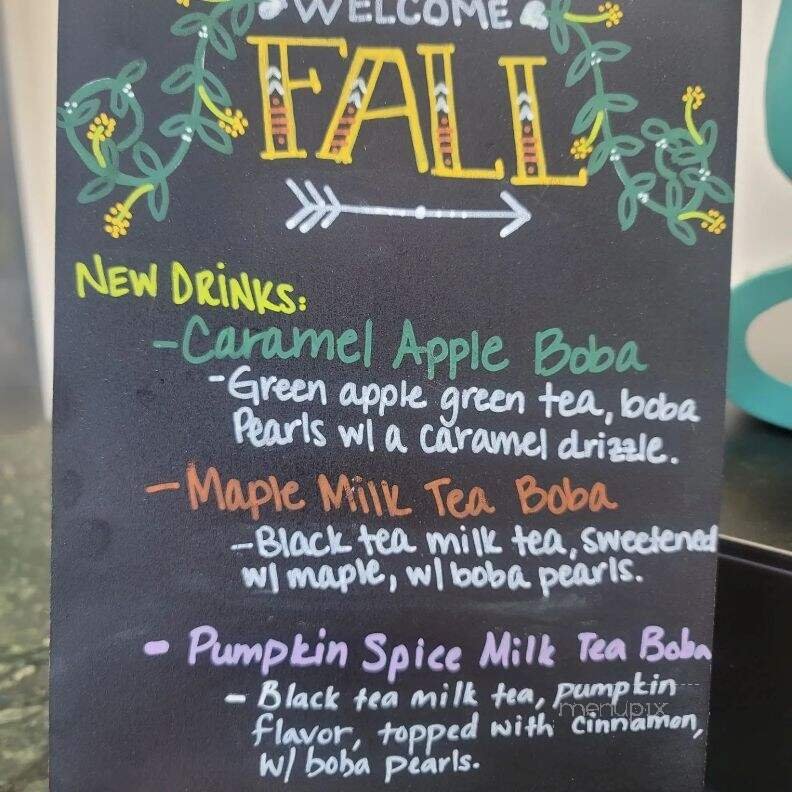 WELCOME
FALL
NEW DRINKS:
-Caramel Apple Boba
-Green apple green tea, boba
Pearls w/ a caramel drizzle.
-Maple Milk Tea Boba
-Black tea milk tea, sweetened
w/ maple, w/ boba pearls.
- Pumpkin Spice Milk Tea Boba
- Black tea milk tea, pumpkin
menupix
flavor, topped with cinnamon,
w/ boba pearls.